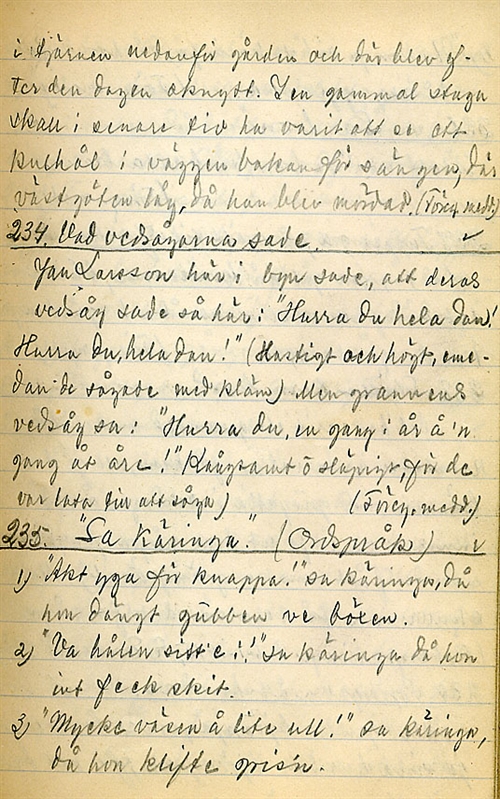 i tjärnen nedanför gården och där blev ef-
ter den dagen oknytt. I en gammal stuga
skall i senare tid ha varit att se ett
kulhål i väggen bakom för sängen, där
västgöten låg, då han blev mördad. (Föreg. medd.)
234. Vad vedsågarna sade.
Jan Larsson här i byn sade, att deras
vedsåg sade så här: "Hurra du hela dan!
Hurra du, hela dan!" (Hastigt och högt, eme-
dan de sågade med kläm) Men grannens
vedsåg sa: "Hurra du, en gang i år å 'n
gang åt åre!" (Långsamt o släpigt, för de
var lata till att såga) (Föreg. medd.)
235. "Sa käringa." (Ordspråk)
1) "Akt yga för knappa!" sa käringa, då
hon dängt gubben ve böxen.
2) "Va hålen sitt'e i!" sa käringa då hon
int feck skit.
3) "Mycke väsen å lite ull!" sa käringa,
då hon klifte gris'n.